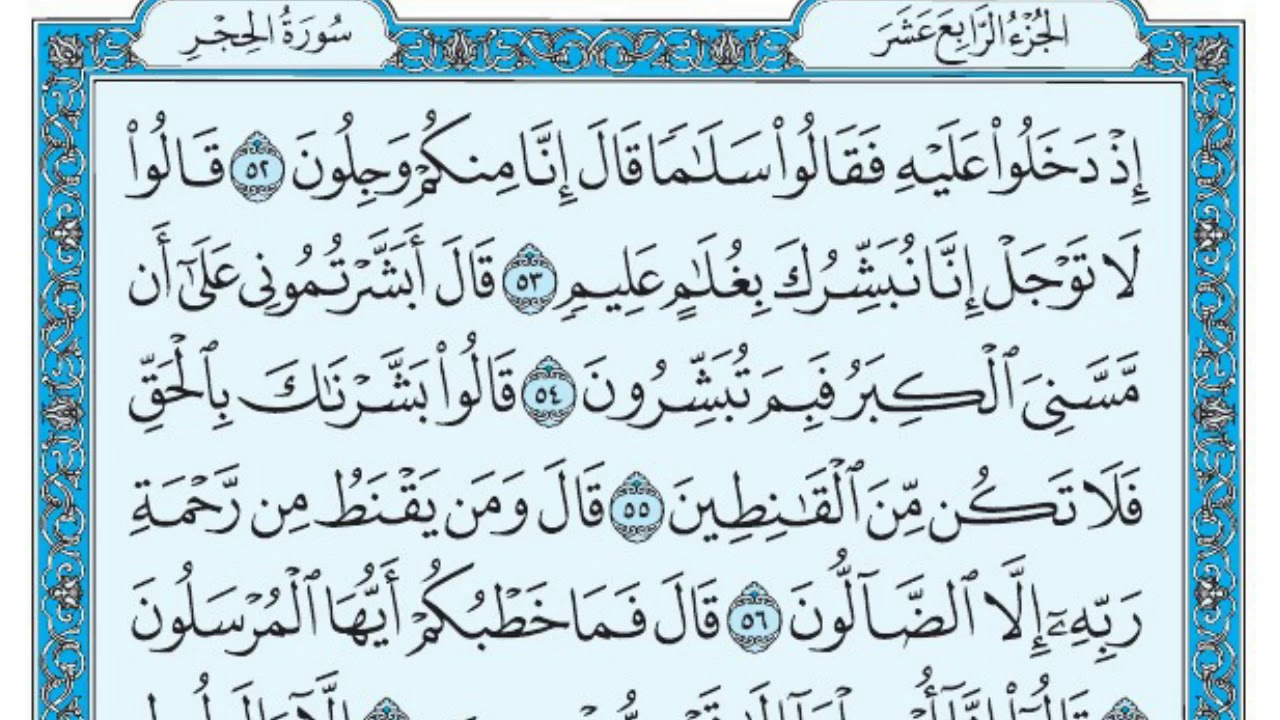 الجُزْءُ الرَّابِعَ عَشَرَ
سُورَةُ الحِجْرِ
إِذْ دَخَلُوا۟ عَلَيْهِ فَقَالُوا۟ سَلَـٰمًا قَالَ إِنَّا مِنكُمْ وَجِلُونَ ٥٢ قَالُوا۟
لَا تَوْجَلْ إِنَّا نُبَشِّرُكَ بِغُلَـٰمٍ عَلِيمٍ ٥٣ قَالَ أَبَشَّرْتُمُونِى عَلَىٰٓ أَن
مَّسَّنِىَ ٱلْكِبَرُ فَبِمَ تُبَشِّرُونَ ٥٤ قَالُوا۟ بَشَّرْنَـٰكَ بِٱلْحَقِّ
فَلَا تَكُن مِّنَ ٱلْقَـٰنِطِينَ ٥٥ قَالَ وَمَن يَقْنَطُ مِن رَّحْمَةِ
رَبِّهِۦٓ إِلَّا ٱلضَّآلُّونَ ٥٦ قَالَ فَمَا خَطْبُكُمْ أَيُّهَا ٱلْمُرْسَلُونَ